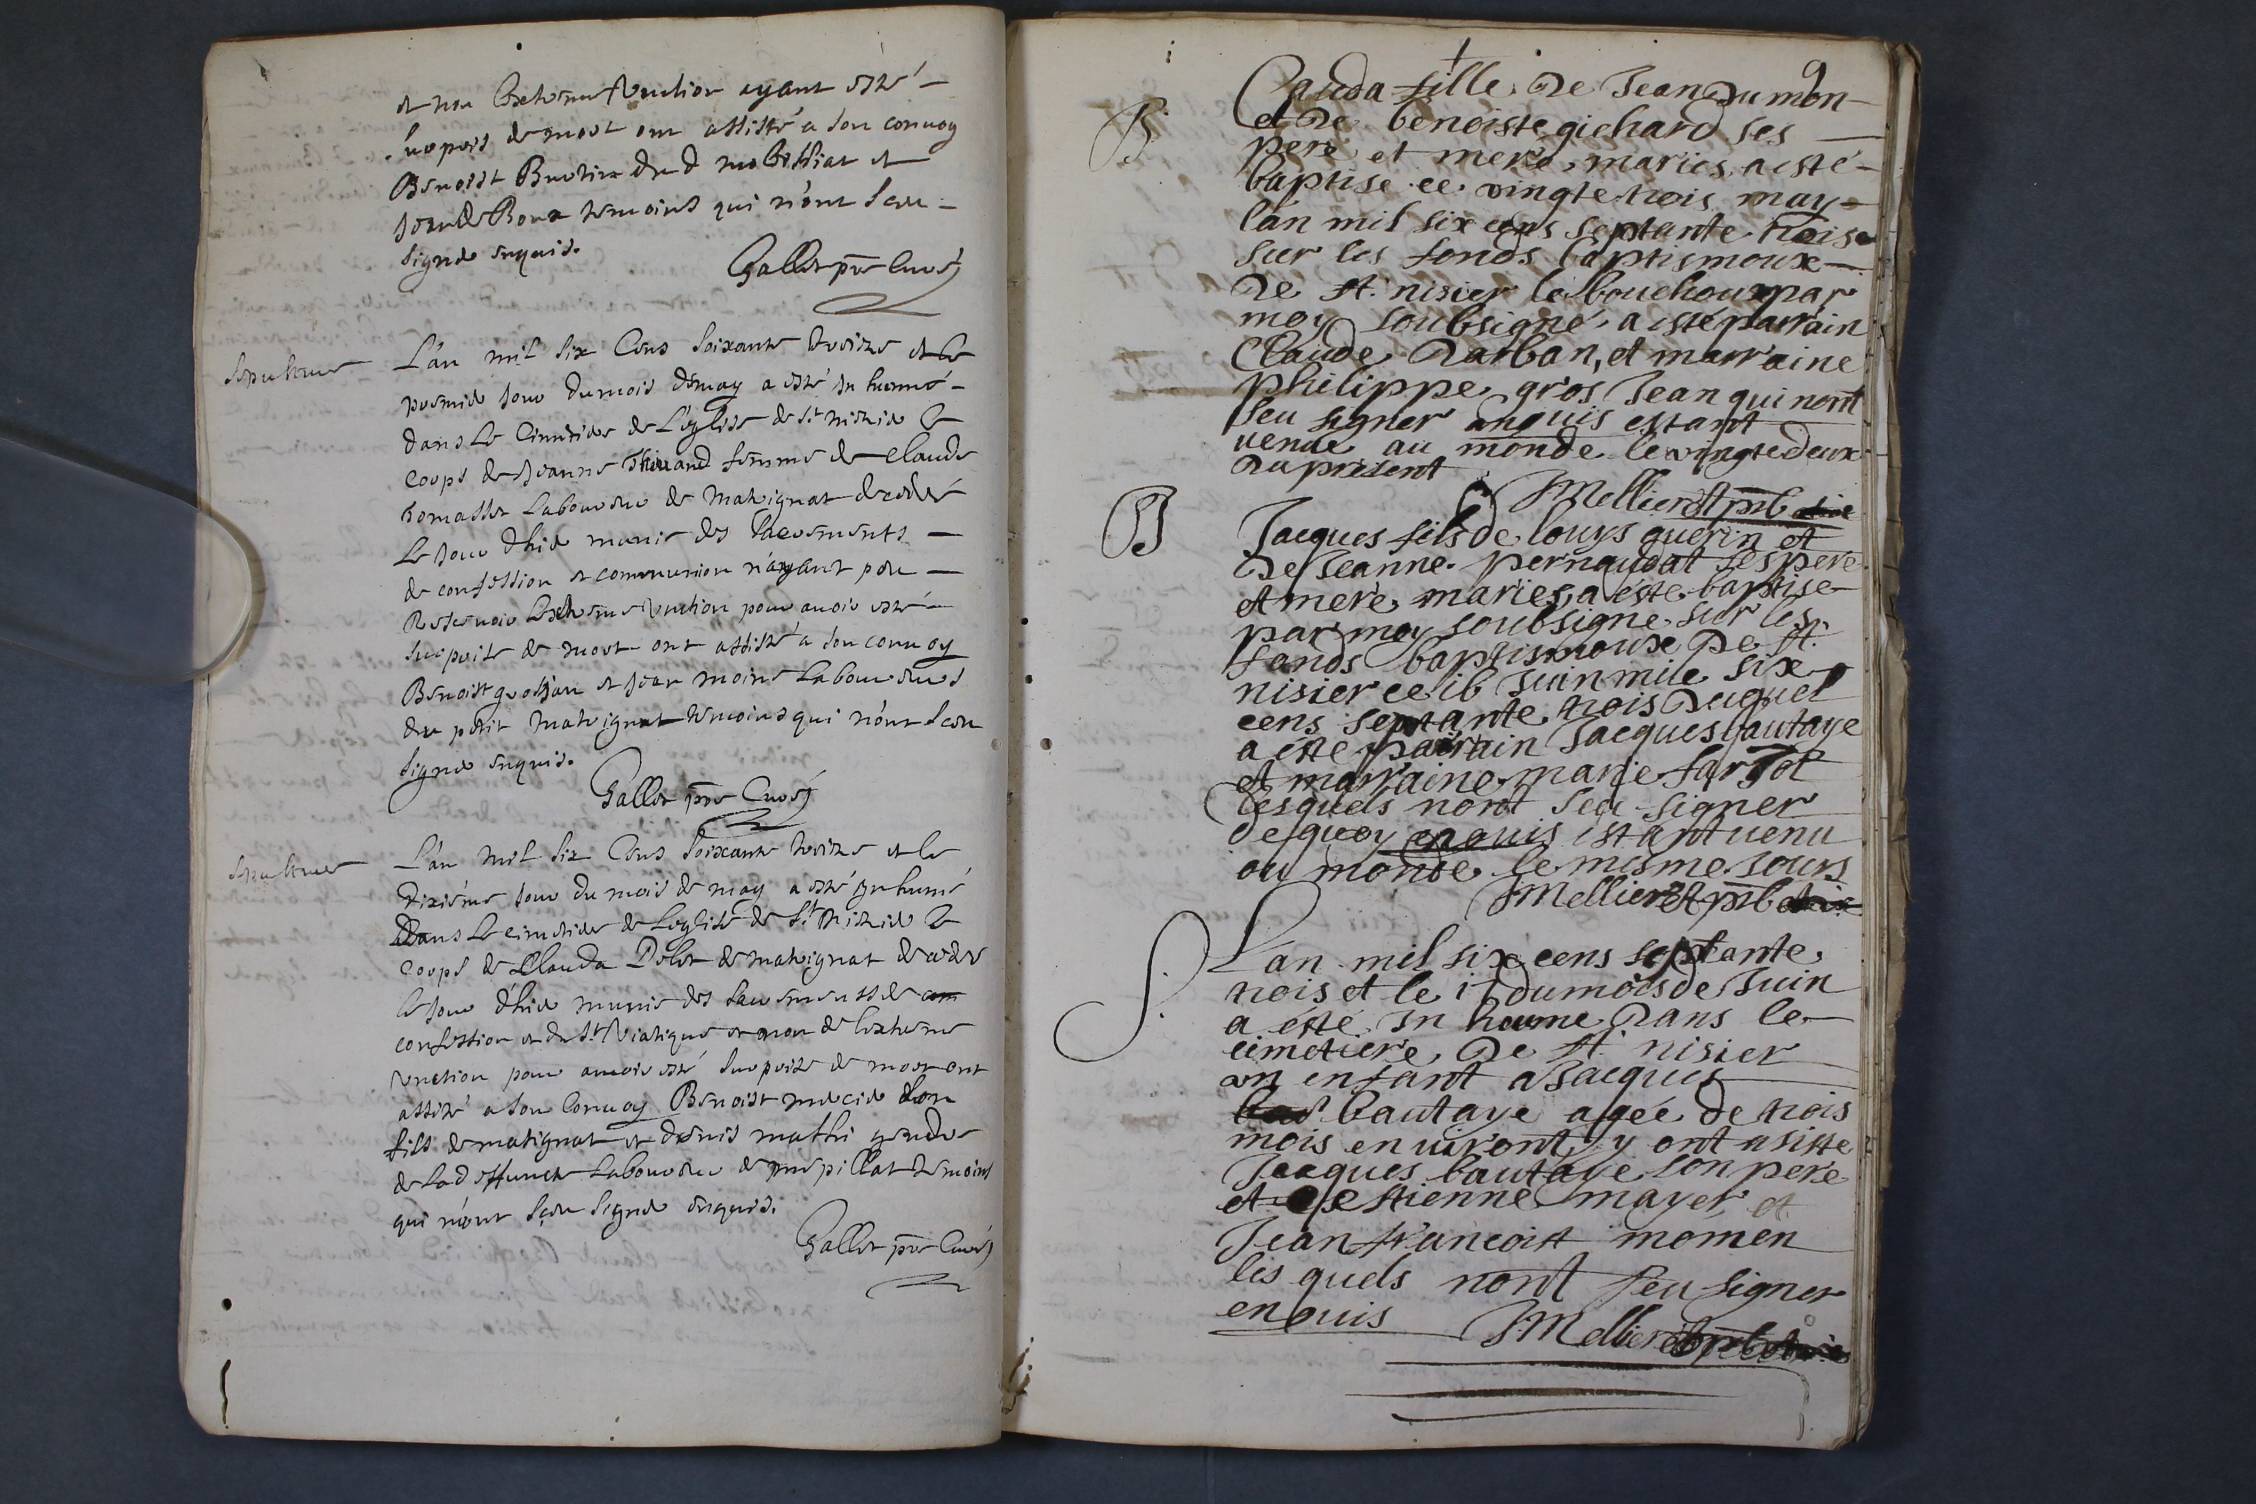 et non Lextreme Vnction ayant esté -
surpris de mort ont assisté a son convoy
Benoist
temoins qui n'ont sceu -
signer enquis.
Gallet pre Curé
Sepulture
L'an mil six Cens soixante treize et le
premier jour du mois de may a esté in humé -
dans le Cimetiere de L'eglise de st nizier le
corps de Jeanne Thiuand femme de claude
Laboureur de Matignat decedeé
Le jour d'hier munie des sacrements -
de confession et communion n'ayant peu -
Recevoir Lextreme Vnction pour avoir esté -
surprise de mort ont assisté a son convoy
Benoist grosjan et jean moine Laboureurs
du petit Matignat temoins qui n'ont sceu
signer enquis.
Gallet pre Curé
Sepulture
L'an mil six Cens soixante treize et le
dixiéme jour du mois de may a esté in humé
Dans Le cimetiere de Leglise de st Nizier le
corps de Clauda Delet de matignat decedee
le jour d'hier munie des sacrements de com
confession et du st Viatique et non de lextreme
vnction pour avoir esté surprise de mort ont
assisté a son Convoy Benoist mercier son
fils de matignat et denis mathi gendre
de Ladeffuncte Laboureur de temoins
qui n'ont sceu signer enquis.
Gallet pre Curé
9
B.
Clauda fille de Jean Dumon
et de benoiste gichard ses
pere et mere, maries, a esté -
baptise ce vingtetrois may -
l'an mil six cens septante trois
sur les fonds baptismoux -
de st. nisier le bouchoux par
moy soubsigné, a esté parrain
Claude darban, et marraine
philippe gros Jean qui nont
seu signer anquis estant
venue au monde le vingtedeux
du present
JMellieret prb
B
Jacques fils de louys guerin et
de Jeanne pernaudat ses pere
et mere maries, a este baptise
par moy soubsigne sur les
fonds baptismoux De st.
nisier ce ib Juin mile six
cens septante trois duquel
a este parrain Jacques bautaye
et marraine marie fargot
lesquels nont seu signer
de quoy enquis estant venu
au monde le mesme jours
JMellieret prb
S.
L'an mil six cens septante
trois et le 17 du mois de Juin
a ésté in hume dans le
cimetiere De st nisier
un enfant a Jacques
bautaye agée de trois
mois environt, y ont asiste
Jacques bautaye son pere
et estienne mayer et
Jean francoist momen
les quels nont seu signer
enquis
JMellieret prb